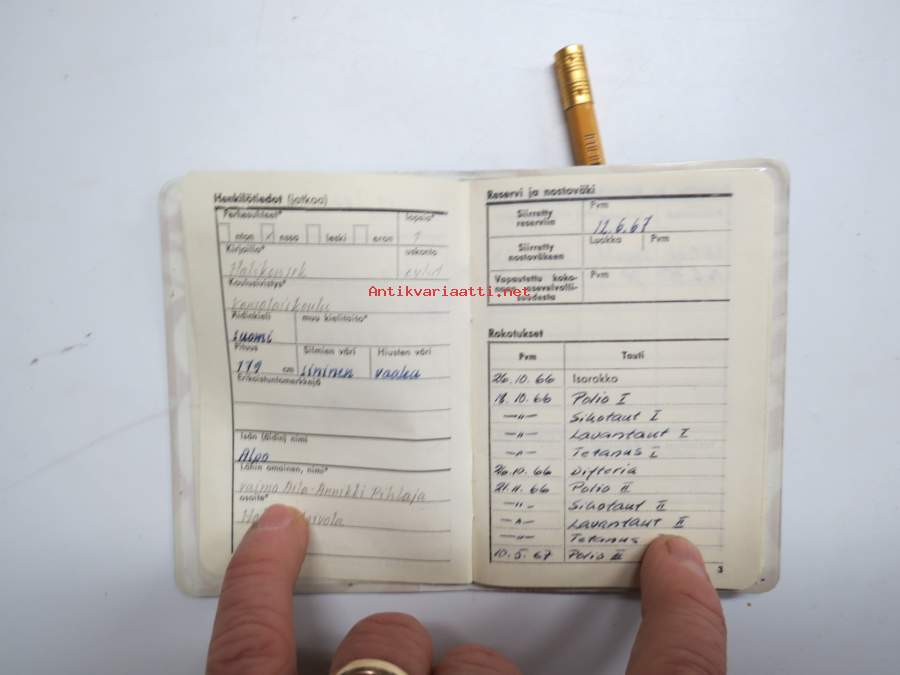 Henkilötiedot (jatkoa)
Perhesuhteet* lapsia*
naton x nssa leski eron 1
Kirjoilla* uskonto
evl.lut
Koulusivistys*
Kansalaiskoulu
Äidinkieli muu kielitaito*
suomi
Pituus Silmien väri Hiusten väri
179 cm sininen vaalea
Erikoistuntomerkkejä
Isän (äidin) nimi
Alpo
Lähin omainen, nimi*
vaimo Aila-Annikki Pihlaja
osoite*
Reservi ja nostoväki
Siirretty reserviin Pvm
12.6.67
Siirretty nostoväkeen Luokka Pvm
Vapautettu kokonaan asevelvollisuudesta Pvm
Rokotukset
Pvm Tauti
26.10.66 Isorokko
18.10.66 Polio I
—"— Sikotaut I
—"— Lavantaut I
—"— Tetanus I
26.10.66 Difteria
21.11.66 Polio II
—"— Sikotaut II
—"— Lavantaut II
—"— Tetanus
10.5.67 Polio III
3
Antikvariaatti.net